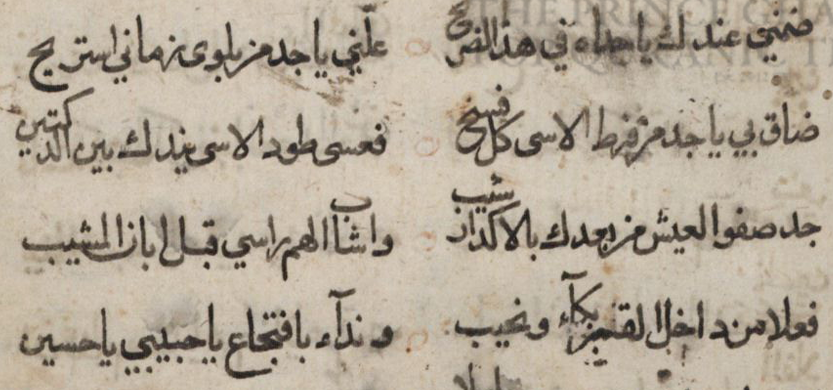 ضمني عندك يا جداه في هذا الضريح علّني يا جد من بلوى زماني استريح
ضاق بي يا جد من فرط الاسى كل فسيح فعسى طود الاسى يندك بين الدكتين
جد صفو العيش من بعدك بالاكدار شيب واشاب الهم راسي قبل ابان المشيب
فعلا من داخل القبر بكآء ونحيب وندآء بافتجاع يا حبيبي يا حسين